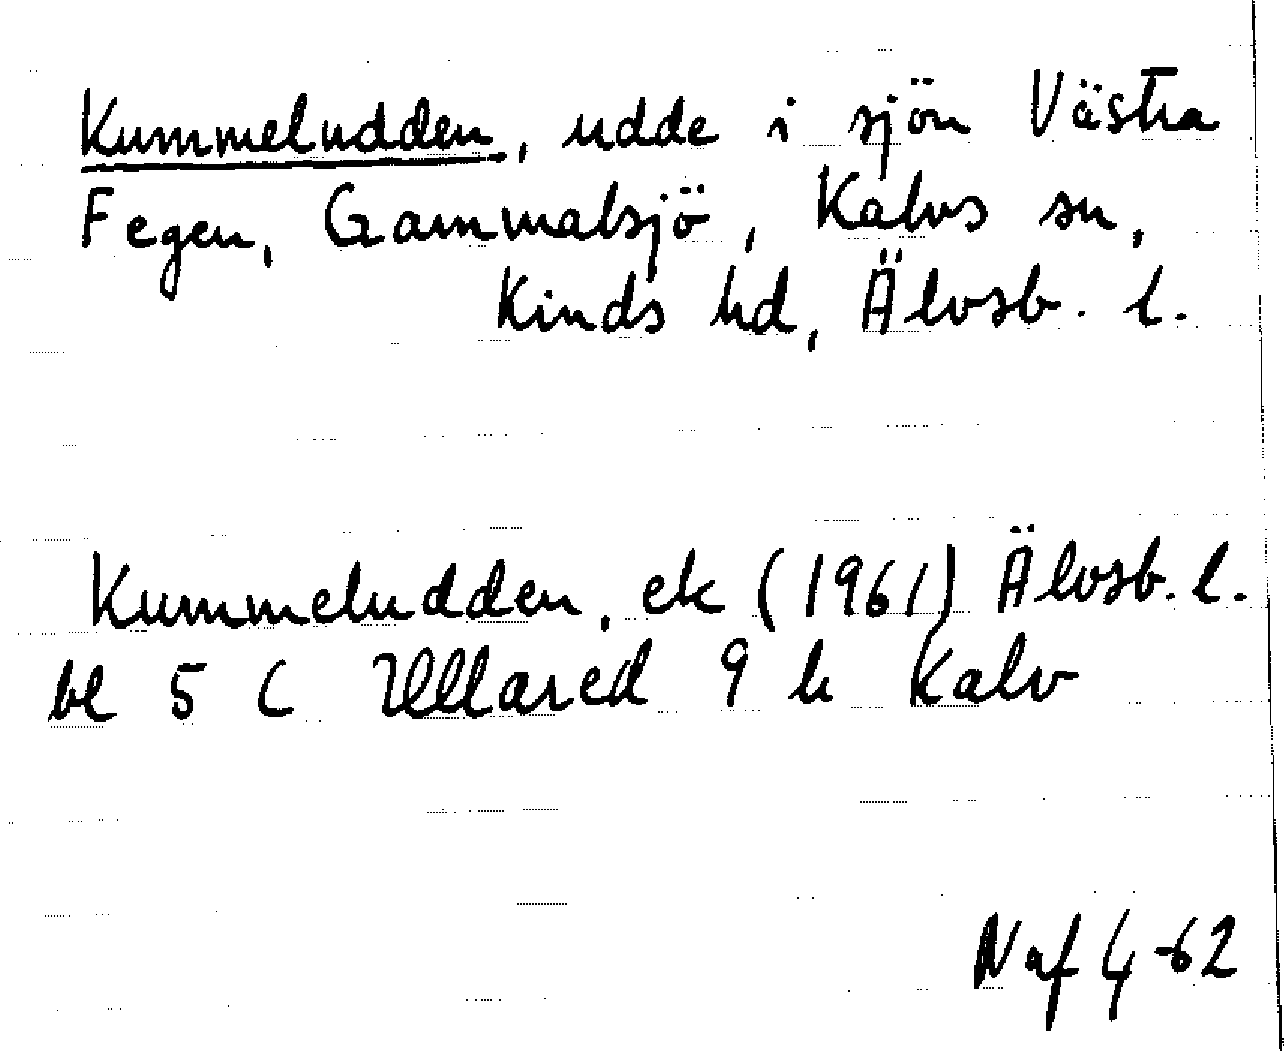 Kummeludden, udde i sjön Västra
Fegen, Gammalsjö, Kalvs sn,
Kinds hd, Älvsb. l.
Kummeludden, ek (1961) Älvsb. l.
bl 5 C Ullared 9 h Kalv
Naf 4-62